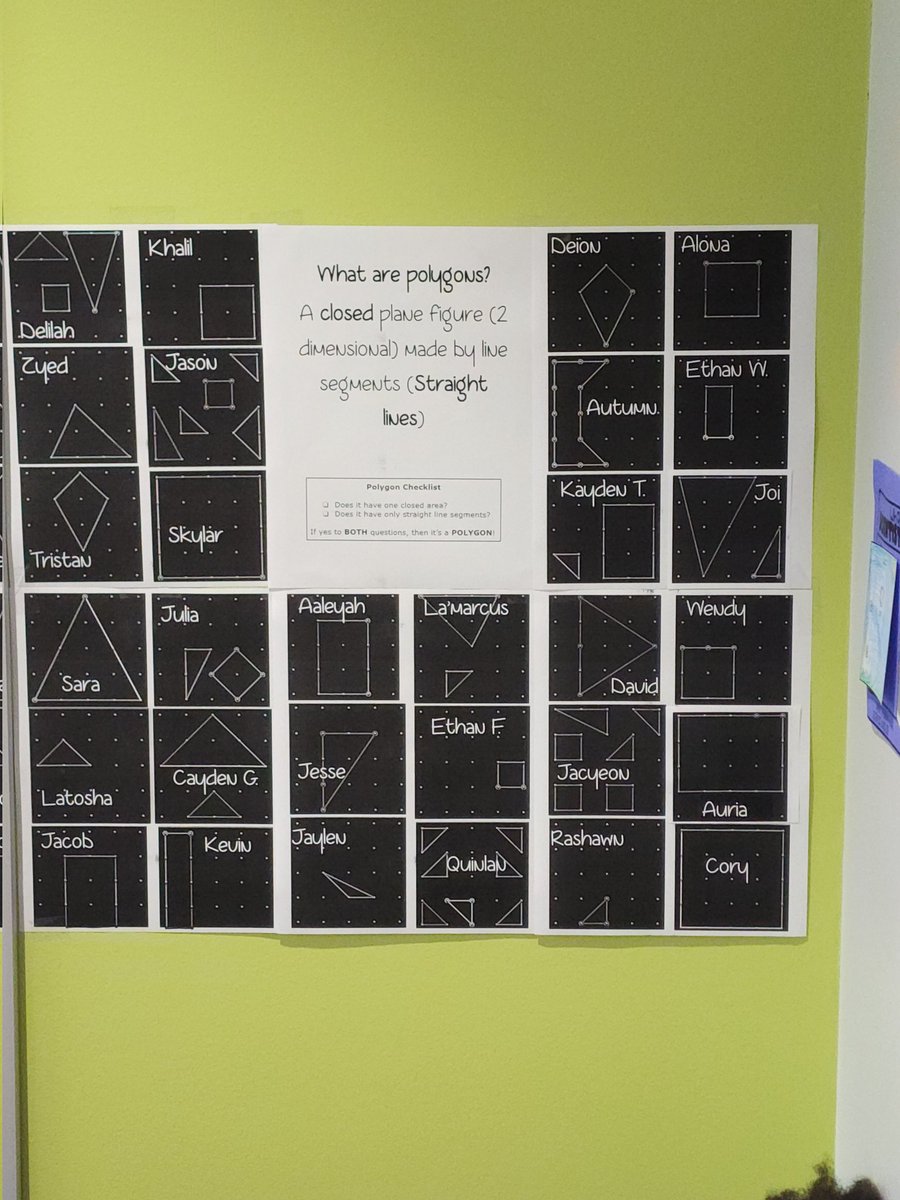 Delilah
Khalil
Zyed
Jason
Tristan
Skylar
What are polygons?
A closed plane figure (2
dimensional) made by line
segments (Straight
lines)
Polygon Checklist
Does it have one closed area?
Does it have only straight line segments?
If yes to BOTH questions, then it's a POLYGON!
Deion
Alona
Autumn
Ethan W.
Kayden T.
Joi
Sara
Julia
Aaleyah
La'Marcus
David
Wendy
Latosha
Cayden G.
Jesse
Ethan F.
Jacyeon
Auria
Jacob
Kevin
Jaylen
Quinlan
Rashawn
Cory